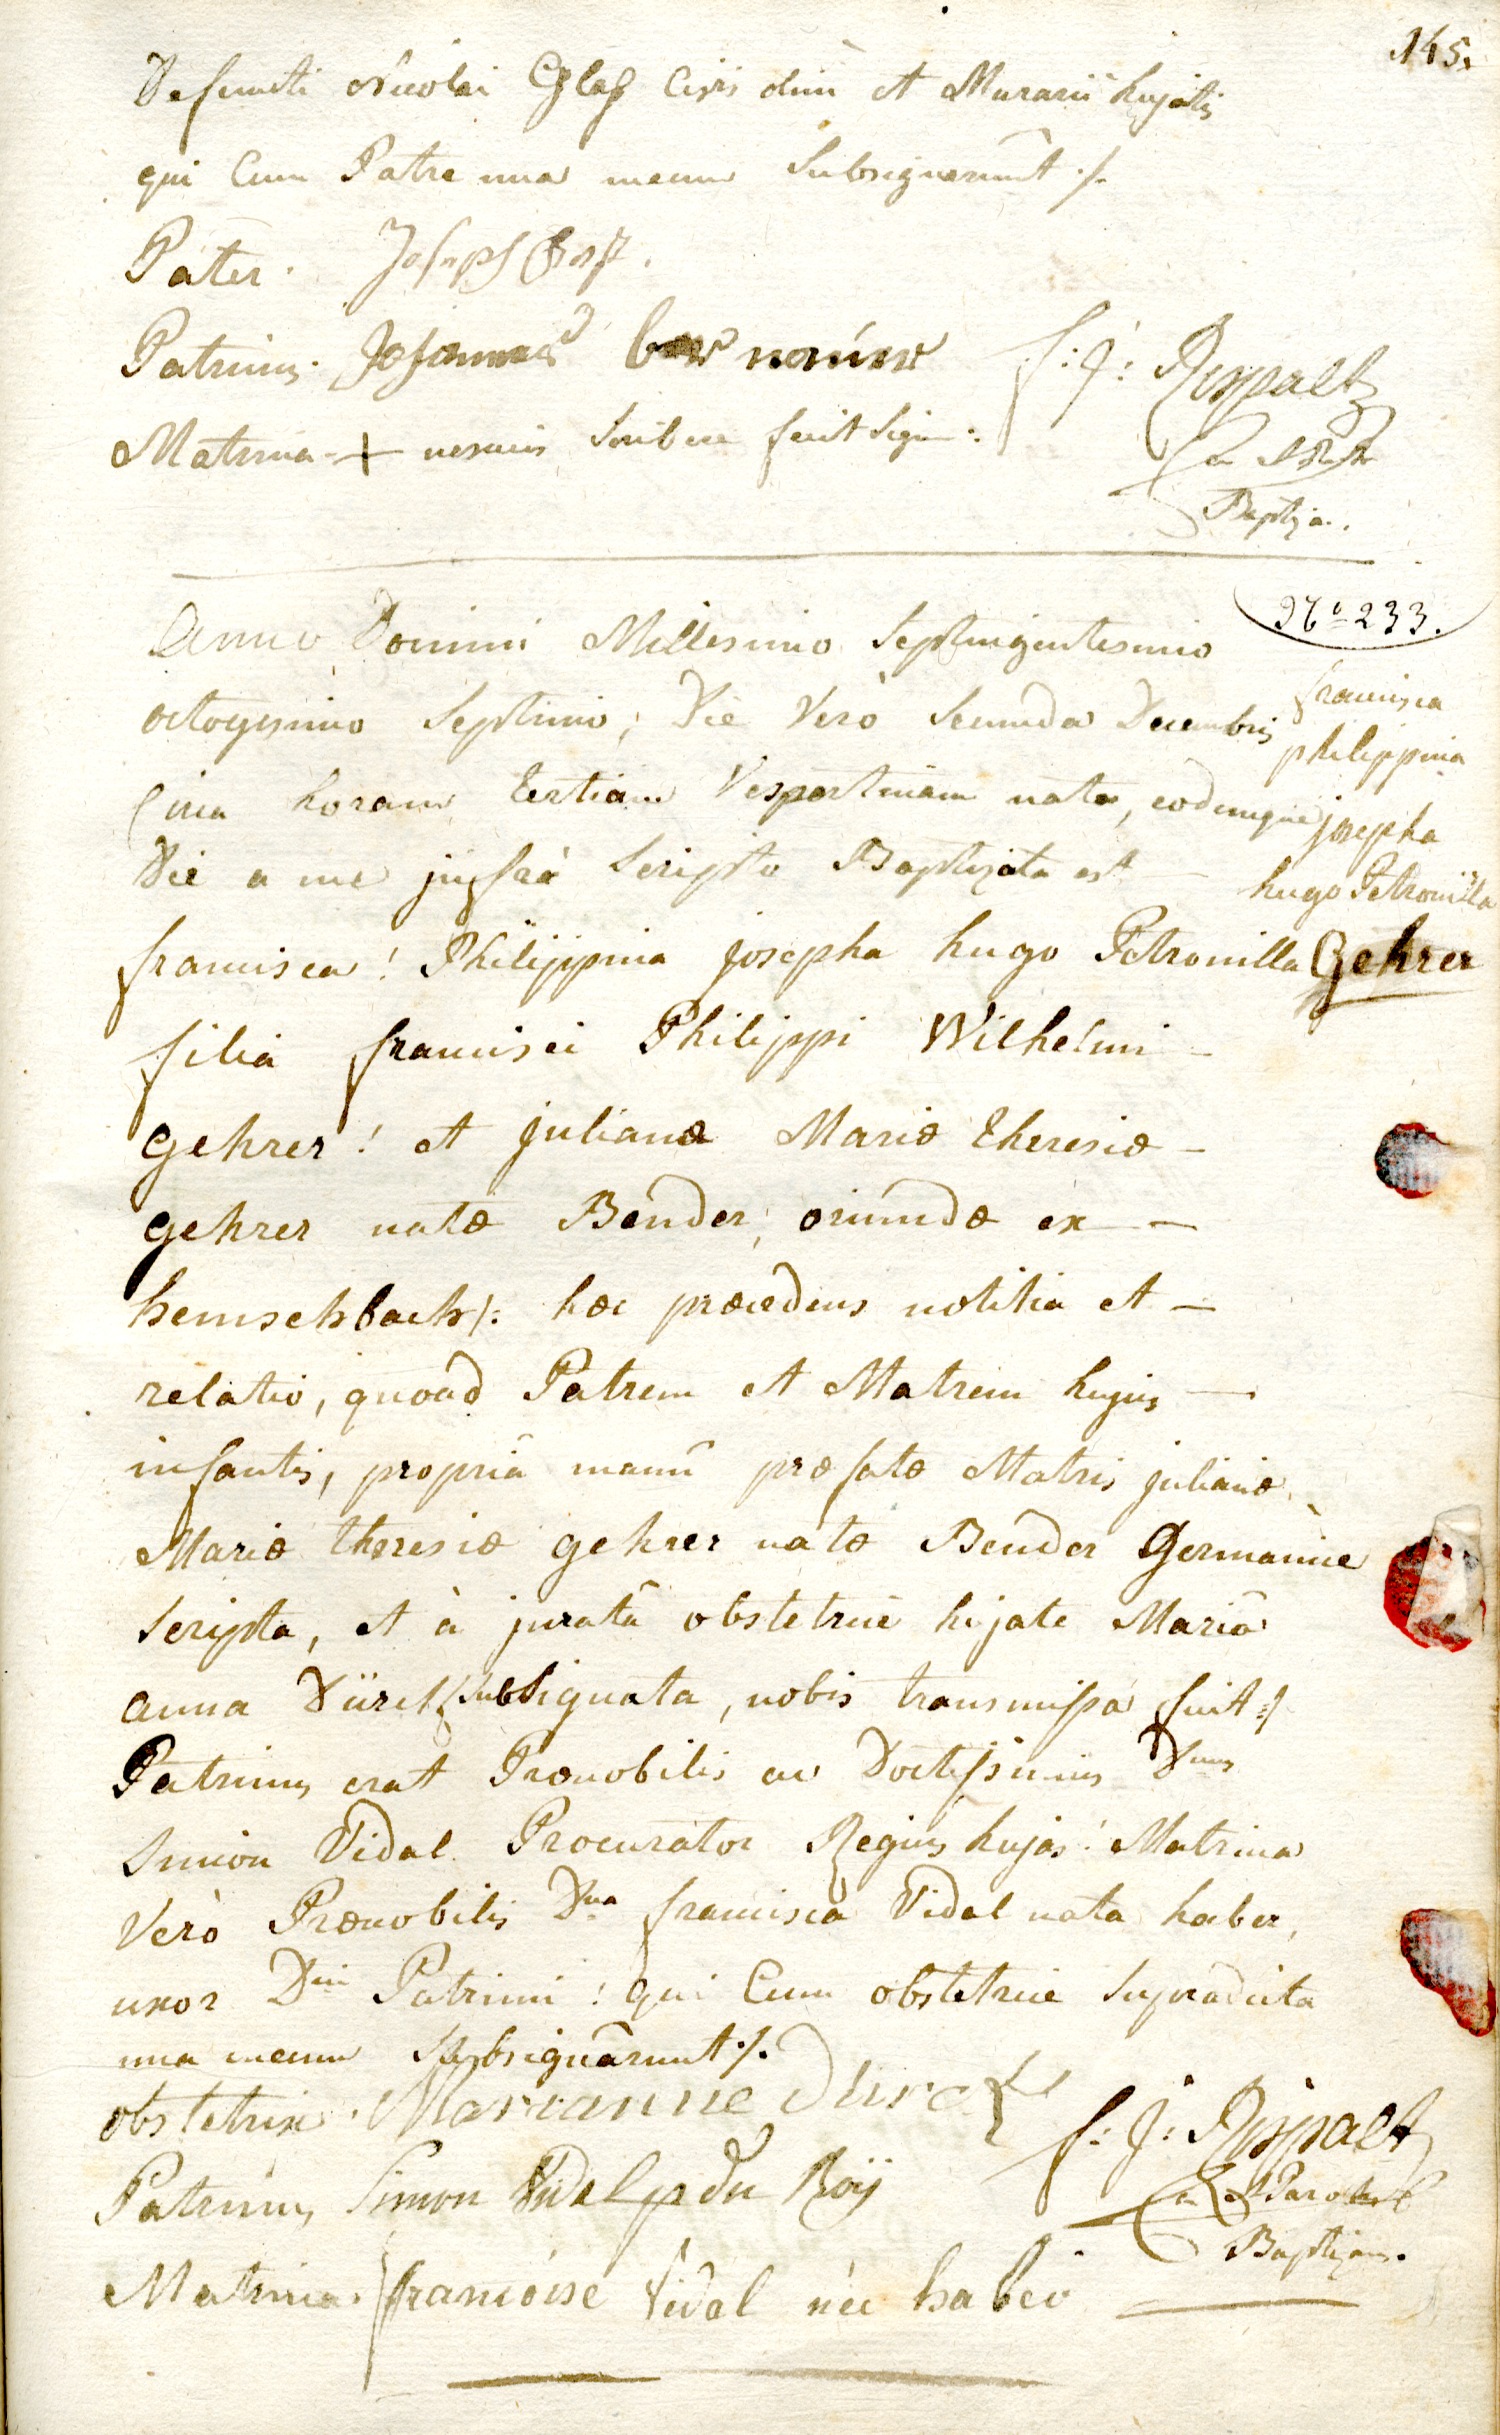 145.
Defuncti Nicolai Glaß Civis olim et Murarii hujatis
qui Cum Patre una mecum Subsignarunt ./.
Pater. Joseph
Patrinus. Johannes
Matrina + nesciens Scribere fecit Signum:
f: J: Rispalt
Baptizans.
Nº 233.
Anno Domini Millesimo Septuagentesimo
octogesimo Septimo, Die Verò Secunda Decembris
Circa horam tertiam Vespertinam nata, eodemque
Die a me infrà Scripto Baptizata est
francisca
philippina
josepha
hugo Petronilla
Gehrer
francisca! Philippina josepha hugo Petronilla
filia francisci Philippi Wilhelmi -
gehrer! et julianæ Mariæ Theresiæ -
gehrer natæ Bender, oriundæ ex - -
hemschbach/: hæc præcedens notitia et -
relatio, quoad Patrem et Matrem hujus -
infantis, propriâ manû præfatæ Matris julianæ
Mariæ theresiæ gehrer natæ Bender Germanice
Scripta, et à juratâ obstetrice hujate Mariâ
anna Dürck Subsignata, nobis transmissa fuit:/
Patrinus erat Prænobilis ac Doctissimus Dnus
Simon Vidal Procurator Regius hujas! Matrina
Verò Prænobilis Dna francisca Vidal nata haber,
uxor Dni Patrini! qui Cum obstetrice Supradicta
una mecum Subsignârunt ./.
obstetrix. Marianne Durck
Patrinus Simon Vidal pr du Roÿ
Matrina. francoise Vidal née haber
f: J: Rispalt
Baptizans.